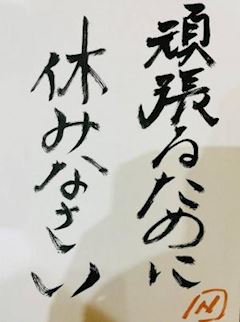 頑張るために
休みなさい